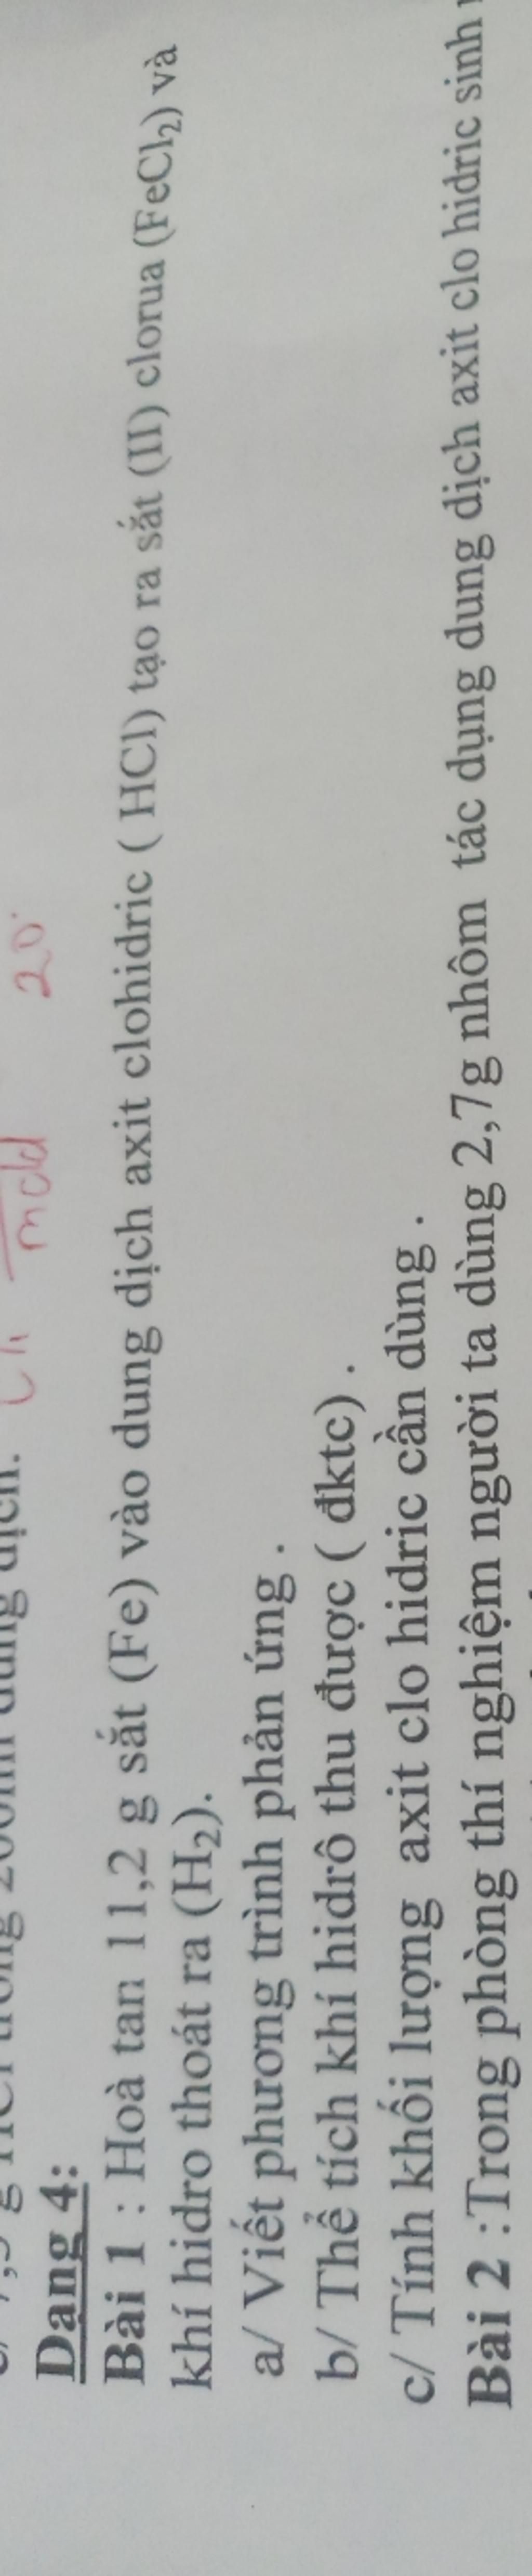 dung dịch.
mdd 20
Dạng 4:
Bài 1 : Hoà tan 11,2 g sắt (Fe) vào dung dịch axit clohidric ( HCl) tạo ra sắt (II) clorua (FeCl₂) và
khí hidro thoát ra (H₂).
a/ Viết phương trình phản ứng .
b/ Thể tích khí hidrô thu được ( đktc) .
c/ Tính khối lượng axit clo hidric cần dùng .
Bài 2 :Trong phòng thí nghiệm người ta dùng 2,7g nhôm tác dụng dung dịch axit clo hidric sinh